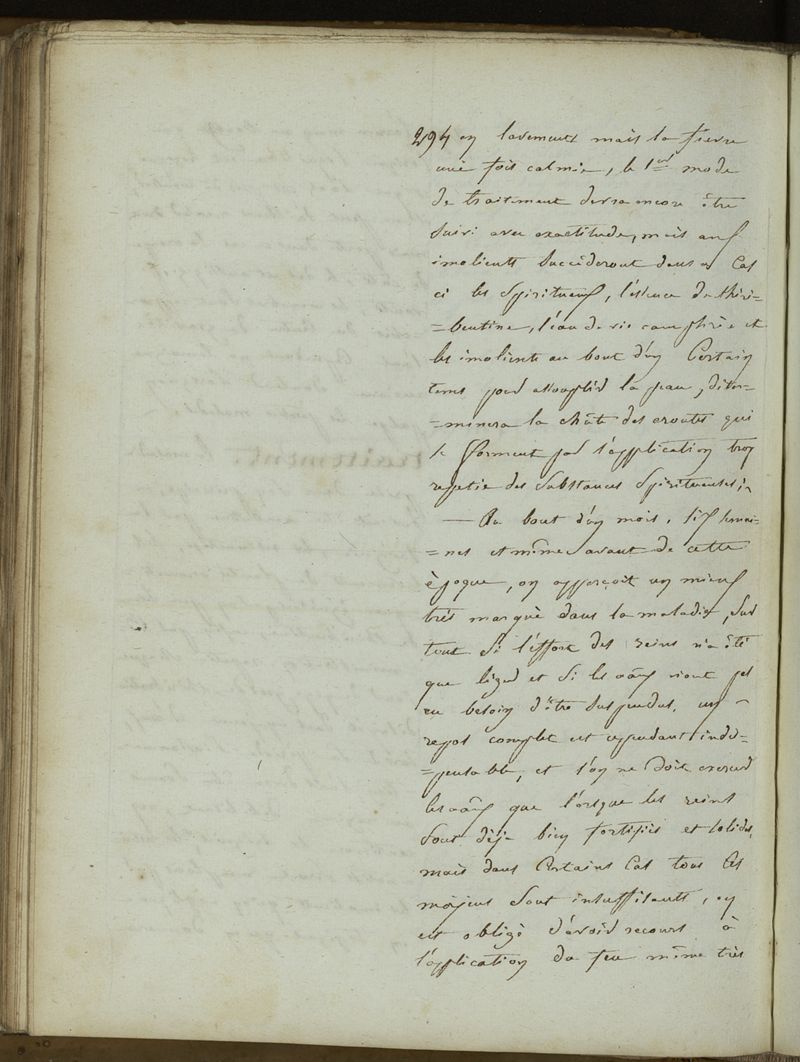 294 en lavements mais la fievre
une fois calmée, le 1er mode
de traitement devra encore être
suivi avec exactitude, mais aux
imolients succèderont dans ce cas
ci les Spiritueux, l'éssence de thiri=
=bentine, l'éau de vie camphrée et
les imolients au bout d'un Certain
tems pour assouplir la peau, diter=
=minera la chûte des croutes qui
se forment par l'application trop
repetie des Substances Spiritueuses;
— Au bout d'un mois, Six semai=
=nes et même avant de cette
èpoque, on apperçoit un mieux
très marqué dans la maladie, Sur
tout Si l'éffort des reins n'a été
que léger et Si les n'ont pas
eu besoin d'être Suspendus, un
repos complet est cependant indis=
=pensable, et l'on ne doit exercer
les que l'orsque les reins
Sont déja bien fortifiés et solides,
mais dans Certains Cas tous Ces
moyens Sont insuffisants, on
est obligé d'avoir recours à
l'application du feu même très